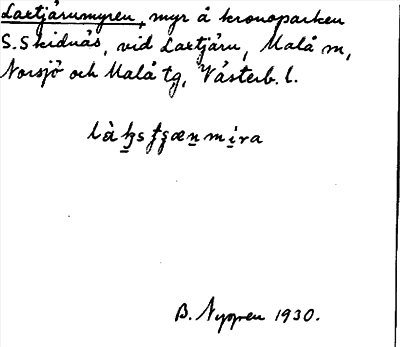 Laxtjärnmyren, myr å kronoparken
S. Skidnäs, vid Laxtjärn, Malå sn,
Norsjö och Malå tg, Västerb. l.
B. Nygren 1930.